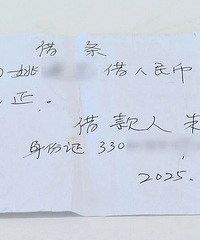 借条
姚 借人民币
正.
借款人
身份证 330
2025.